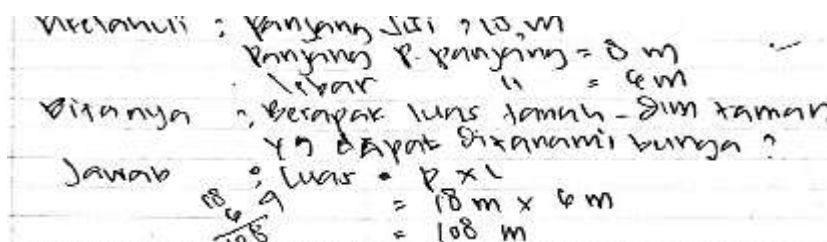 Diketahui : Panjang sisi = 18 m
Panjang p. panjang = 8 m
lebar " = 6 m
Ditanya : Berapak luas tamah - dlm taman
yg dapat ditanami bunga ?
Jawab : Luas = p x l
= 18 m x 6 m
= 108 m
18
6
108